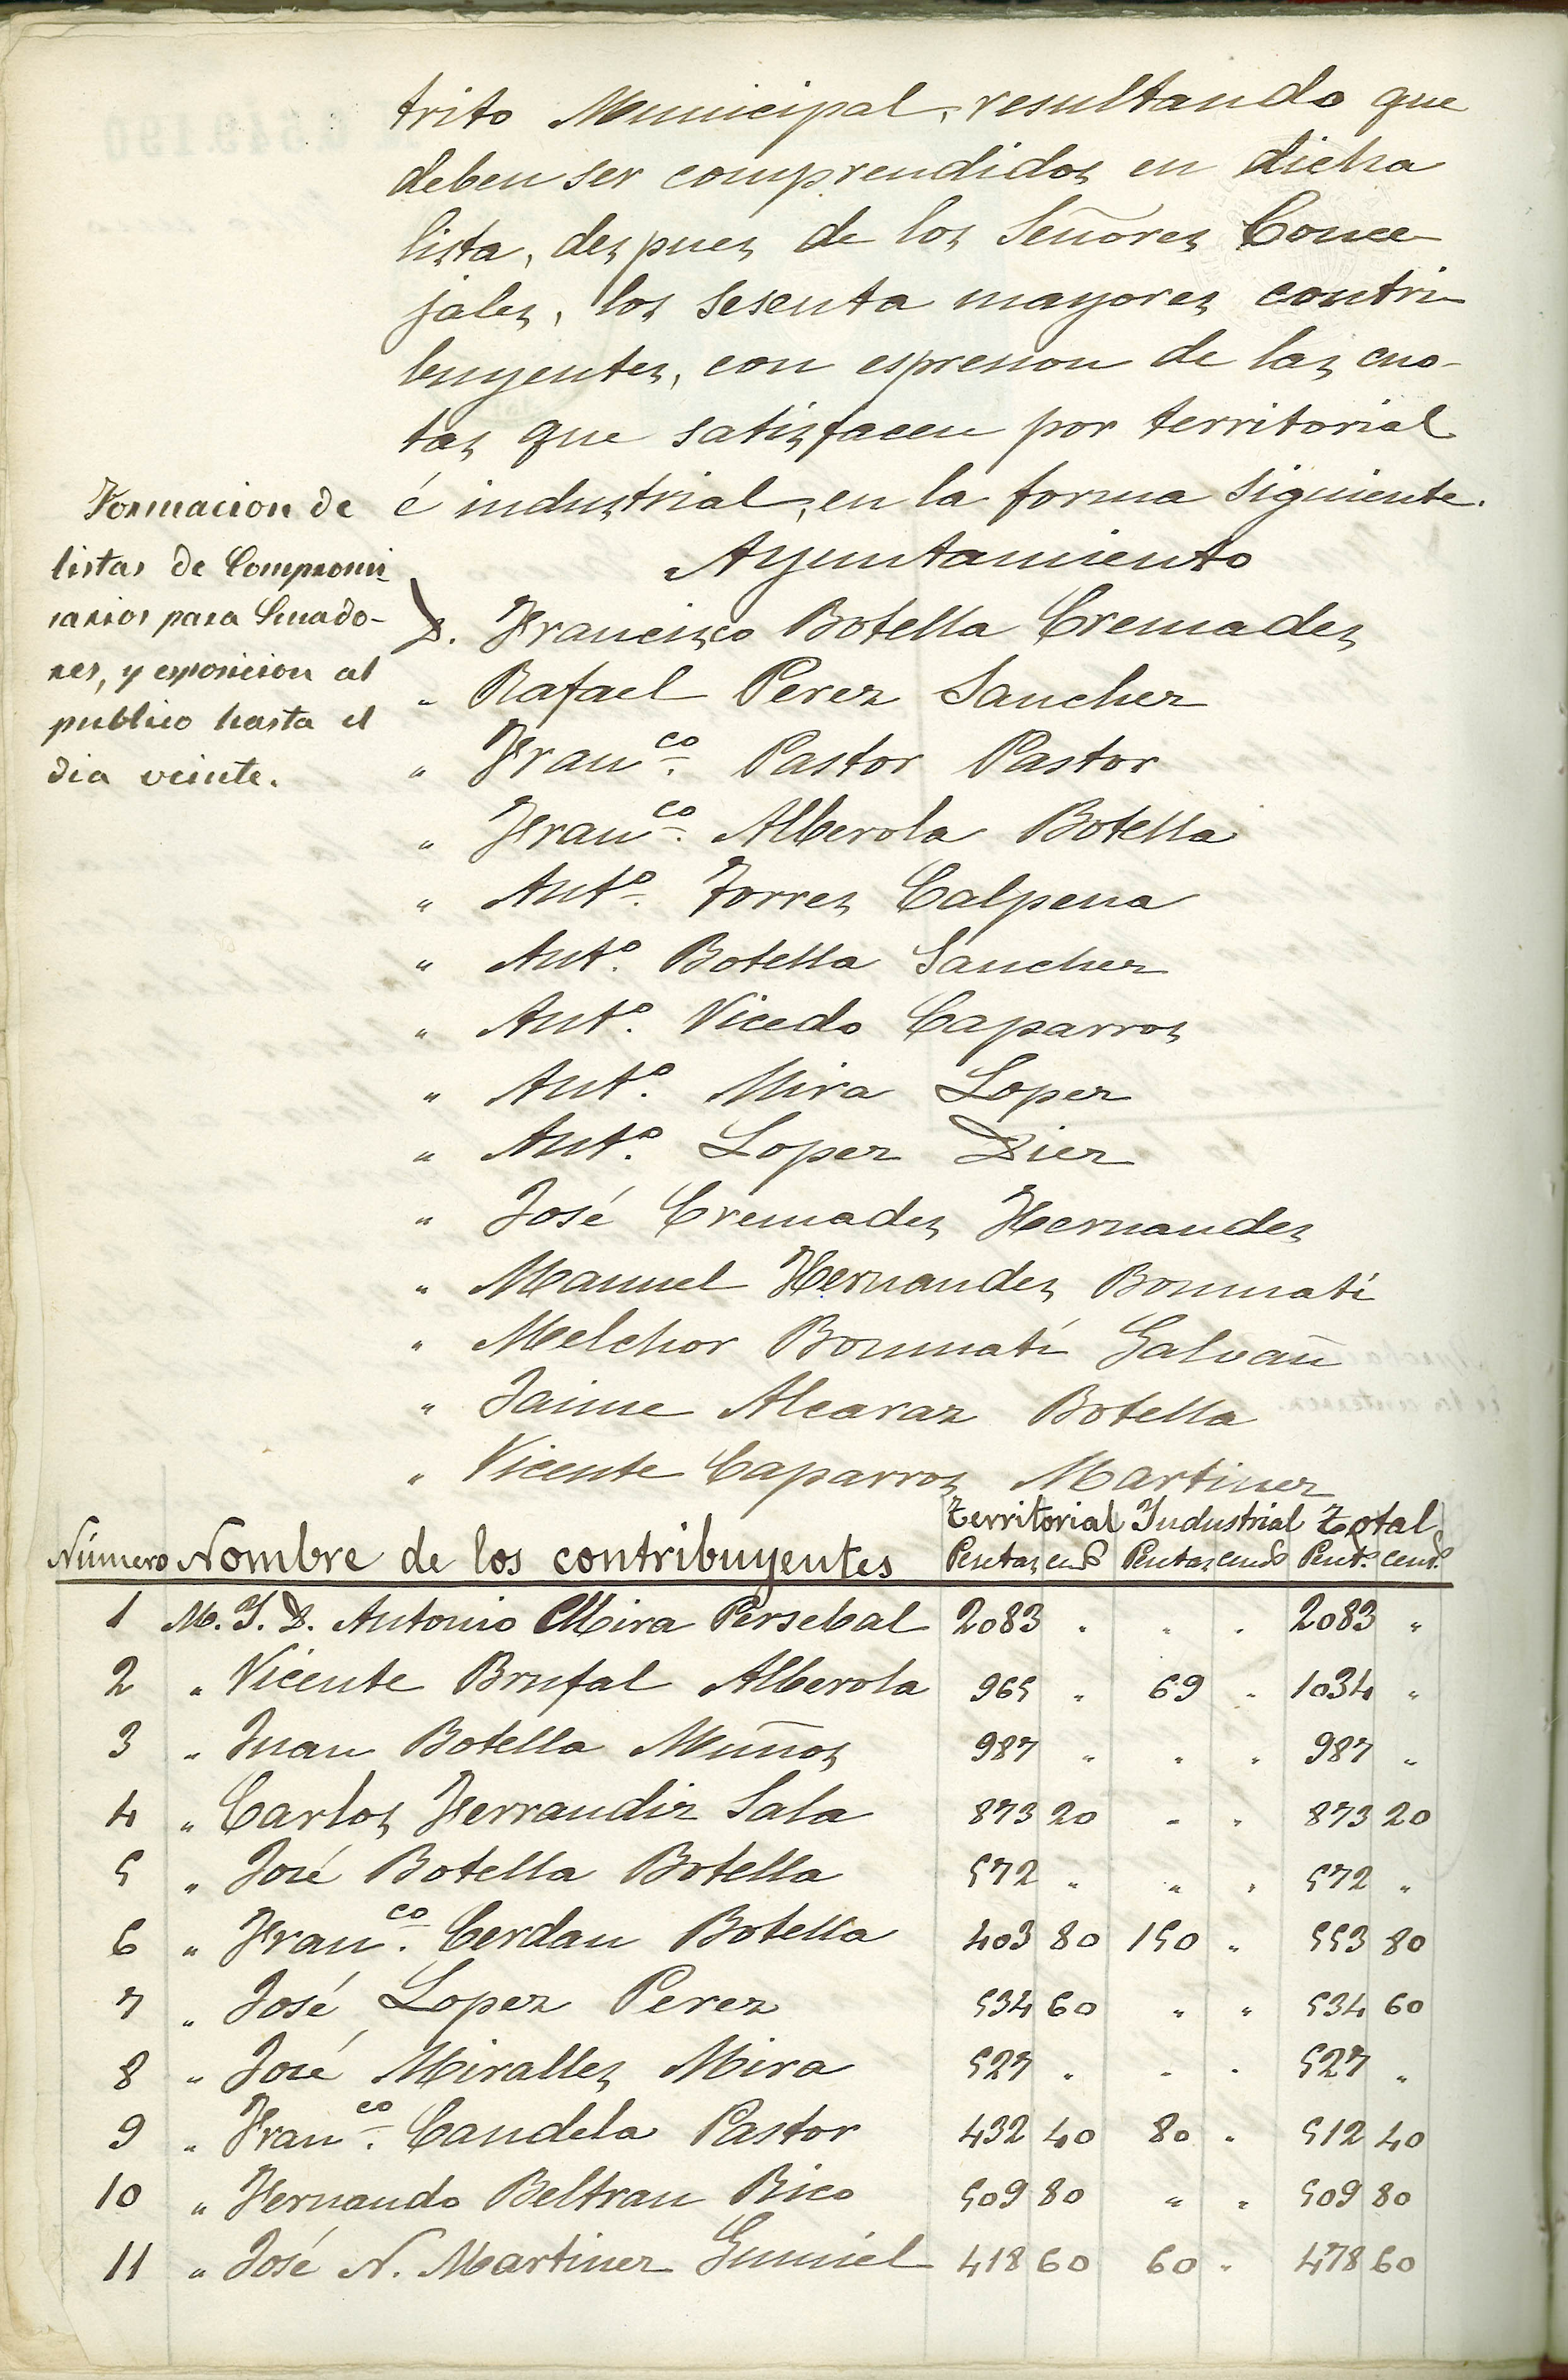 trito Municipal, resultando que
deben ser comprendidos en dicha
lista, despues de los Señores Conce-
jales, los sesenta mayores contri-
buyentes, con espresion de las cuo-
tas que satisfacen por territorial
é industrial, en la forma siguiente.
Formacion de
listas de Compromi-
sarios para Senado-
res, y esposicion al
publico hasta el
dia veinte.
Ayuntamiento
D. Francisco Botella Cremades
" Rafael Perez Sanchez
" Franco. Pastor Pastor
" Franco. Alberola Botella
" Anto. Torres Calpena
" Anto. Botella Sanchez
" Anto. Vicedo Caparros
" Anto. Mira Lopez
" Anto. Lopez Diez
" José Cremades Hernandes
" Manuel Hernandes Bonmatí
" Melchor Bonmatí Galvañ
" Jaime Alcaraz Botella
" Vicente Caparros Martinez
Territorial Industrial Total
Número Nombre de los contribuyentes Pesetas cents Pesetas cents Peset.s cent.s
1 M. Y. D. Antonio Mira Persebal 2083 " " " 2083 "
2 " Vicente Brufal Alberola 965 " 69 " 1034 "
3 " Juan Botella Muños 987 " " " 987 "
4 " Carlos Ferrandiz Sala 873 20 " " 873 20
5 " José Botella Botella 572 " " " 572 "
6 " Franco. Cerdan Botella 403 80 150 " 553 80
7 " José Lopez Perez 534 60 " " 534 60
8 " José Miralles Mira 527 " " " 527 "
9 " Franco. Candela Pastor 432 40 80 " 512 40
10 " Fernando Beltran Rico 509 80 " " 509 80
11 " José N. Martinez Gumiel 418 60 60 " 478 60